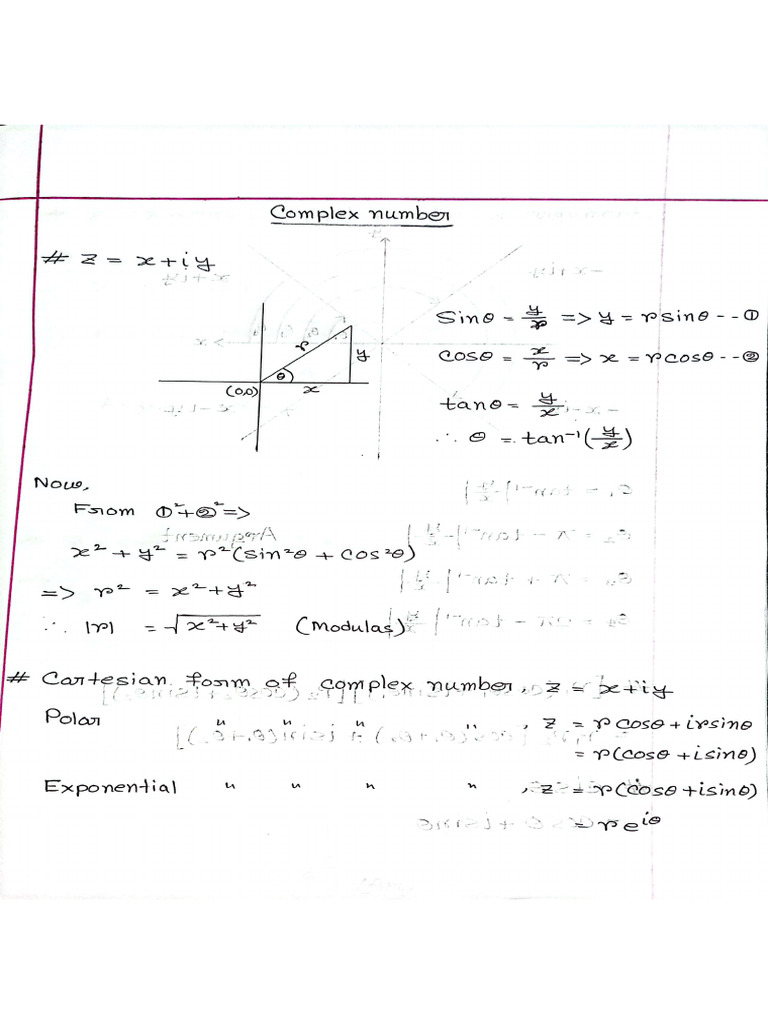 Complex number
# z = x+iy
Sinθ = y/r => y = rsinθ -- ①
Cosθ = x/r => x = rcosθ -- ②
r
y
θ
(0,0)
x
tanθ = y/x
∴ θ = tan⁻¹(y/x)
Now,
From ①²+②² =>
x² + y² = r²(sin²θ + cos²θ)
=> r² = x²+y²
∴ |r| = √x²+y² (Modulas)
# Cartesian form of complex number, z = x+iy
Polar " " " ", z = rcosθ+irsinθ
= r(cosθ+isinθ)
Exponential " " " ", z = r(cosθ+isinθ)
= re^iθ